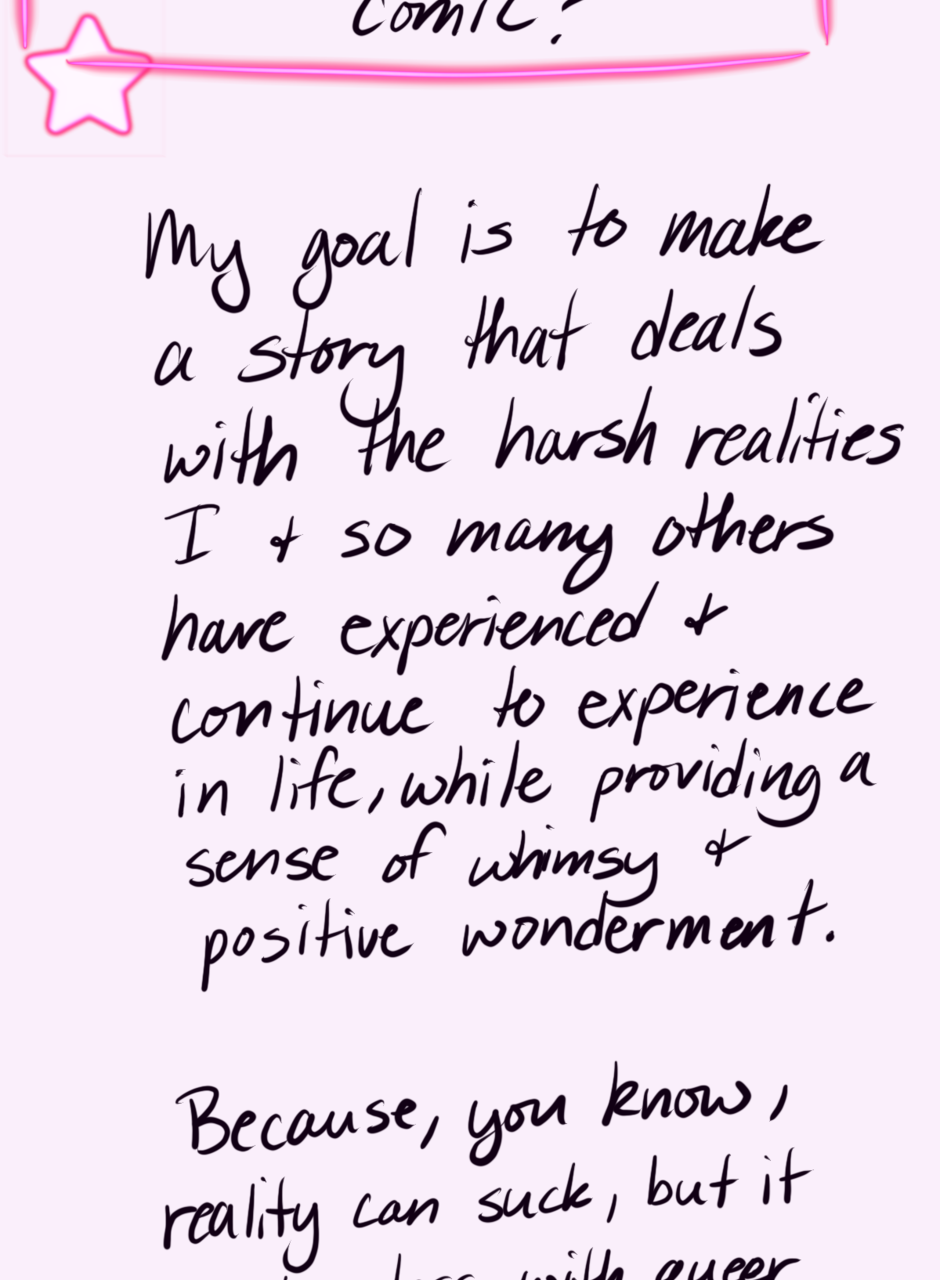 comic?
My goal is to make
a story that deals
with the harsh realities
I & so many others
have experienced &
continue to experience
in life, while providing a
sense of whimsy &
positive wonderment.
Because, you know,
reality can suck, but it
less with queer